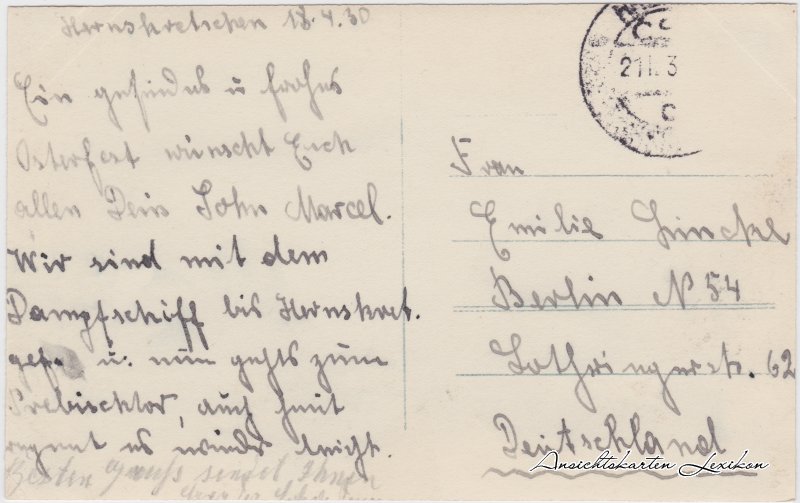 Hernskretschen 18.4.30
Ein gesundes u frohes
Osterfest wünscht Euch
allen Dein Sohn Marcel.
Wir sind mit dem
Dampfschiff bis Hernskret.
gef. u. nun gehts zum
Prebischtor, auch heut
regnet es wieder leicht.
Besten Gruß sendet Ihnen
21.I.3
Frau
Emilie Lincke
Berlin N 54
Lothringerstr. 62
Deutschland
Ansichtskarten Lexikon